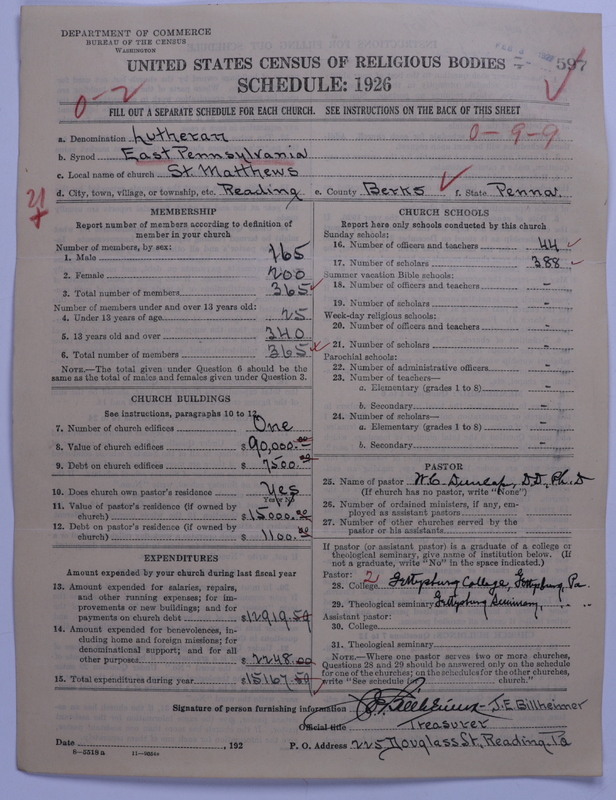 DEPARTMENT OF COMMERCE
BUREAU OF THE CENSUS
WASHINGTON
597
UNITED STATES CENSUS OF RELIGIOUS BODIES
SCHEDULE: 1926
0-2
FILL OUT A SEPARATE SCHEDULE FOR EACH CHURCH. SEE INSTRUCTIONS ON THE BACK OF THIS SHEET
a. Denomination Lutheran
0-9-9
b. Synod East Pennsylvania
c. Local name of church St. Matthews
d. City, town, village, or township, etc. Reading e. County Berks f. State Penna.
MEMBERSHIP
Report number of members according to definition of
member in your church
Number of members, by sex:
1. Male 165
2. Female 200
3. Total number of members 365
Number of members under and over 13 years old:
4. Under 13 years of age 25
5. 13 years old and over 340
6. Total number of members 365
NOTE.—The total given under Question 6 should be the
same as the total of males and females given under Question 3.
CHURCH BUILDINGS
See instructions, paragraphs 10 to 12
7. Number of church edifices One
8. Value of church edifices $90,000.00
9. Debt on church edifices $7500.00
10. Does church own pastor's residence Yes
Yes or No
11. Value of pastor's residence (if owned by
church) $15000.00
12. Debt on pastor's residence (if owned by
church) $1100.00
EXPENDITURES
Amount expended by your church during last fiscal year
13. Amount expended for salaries, repairs,
and other running expenses; for im-
provements or new buildings; and for
payments on church debt $12919.59
14. Amount expended for benevolences, in-
cluding home and foreign missions; for
denominational support; and for all
other purposes $2248.00
15. Total expenditures during year $15167.59
CHURCH SCHOOLS
Report here only schools conducted by this church
Sunday schools:
16. Number of officers and teachers 44
17. Number of scholars 388
Summer vacation Bible schools:
18. Number of officers and teachers -
19. Number of scholars -
Week-day religious schools:
20. Number of officers and teachers -
21. Number of scholars -
Parochial schools:
22. Number of administrative officers -
23. Number of teachers—
a. Elementary (grades 1 to 8) -
b. Secondary -
24. Number of scholars—
a. Elementary (grades 1 to 8) -
b. Secondary -
PASTOR
25. Name of pastor W.C. Dunlap, D.D, Ph.D
(If church has no pastor, write "None")
26. Number of ordained ministers, if any, em-
ployed as assistant pastors
27. Number of other churches served by the
pastor or his assistants
If pastor (or assistant pastor) is a graduate of a college or
theological seminary, give name of institution below. (If
not a graduate, write "No" in the space indicated.)
Pastor:
28. College 2 Gettysburg College, Gettysburg, Pa.
29. Theological seminary Gettysburg Seminary, " "
Assistant pastor:
30. College
31. Theological seminary
NOTE.—Where one pastor serves two or more churches,
Questions 28 and 29 should be answered only on the schedule
for one of the churches; on the schedules for the other churches,
write "See schedule for church."
Signature of person furnishing information J.E. Billheimer - J.E. Billheimer
Official title Treasurer
Date , 192 P. O. Address 225 Douglass St, Reading. Pa
8-5518a 11-9054a